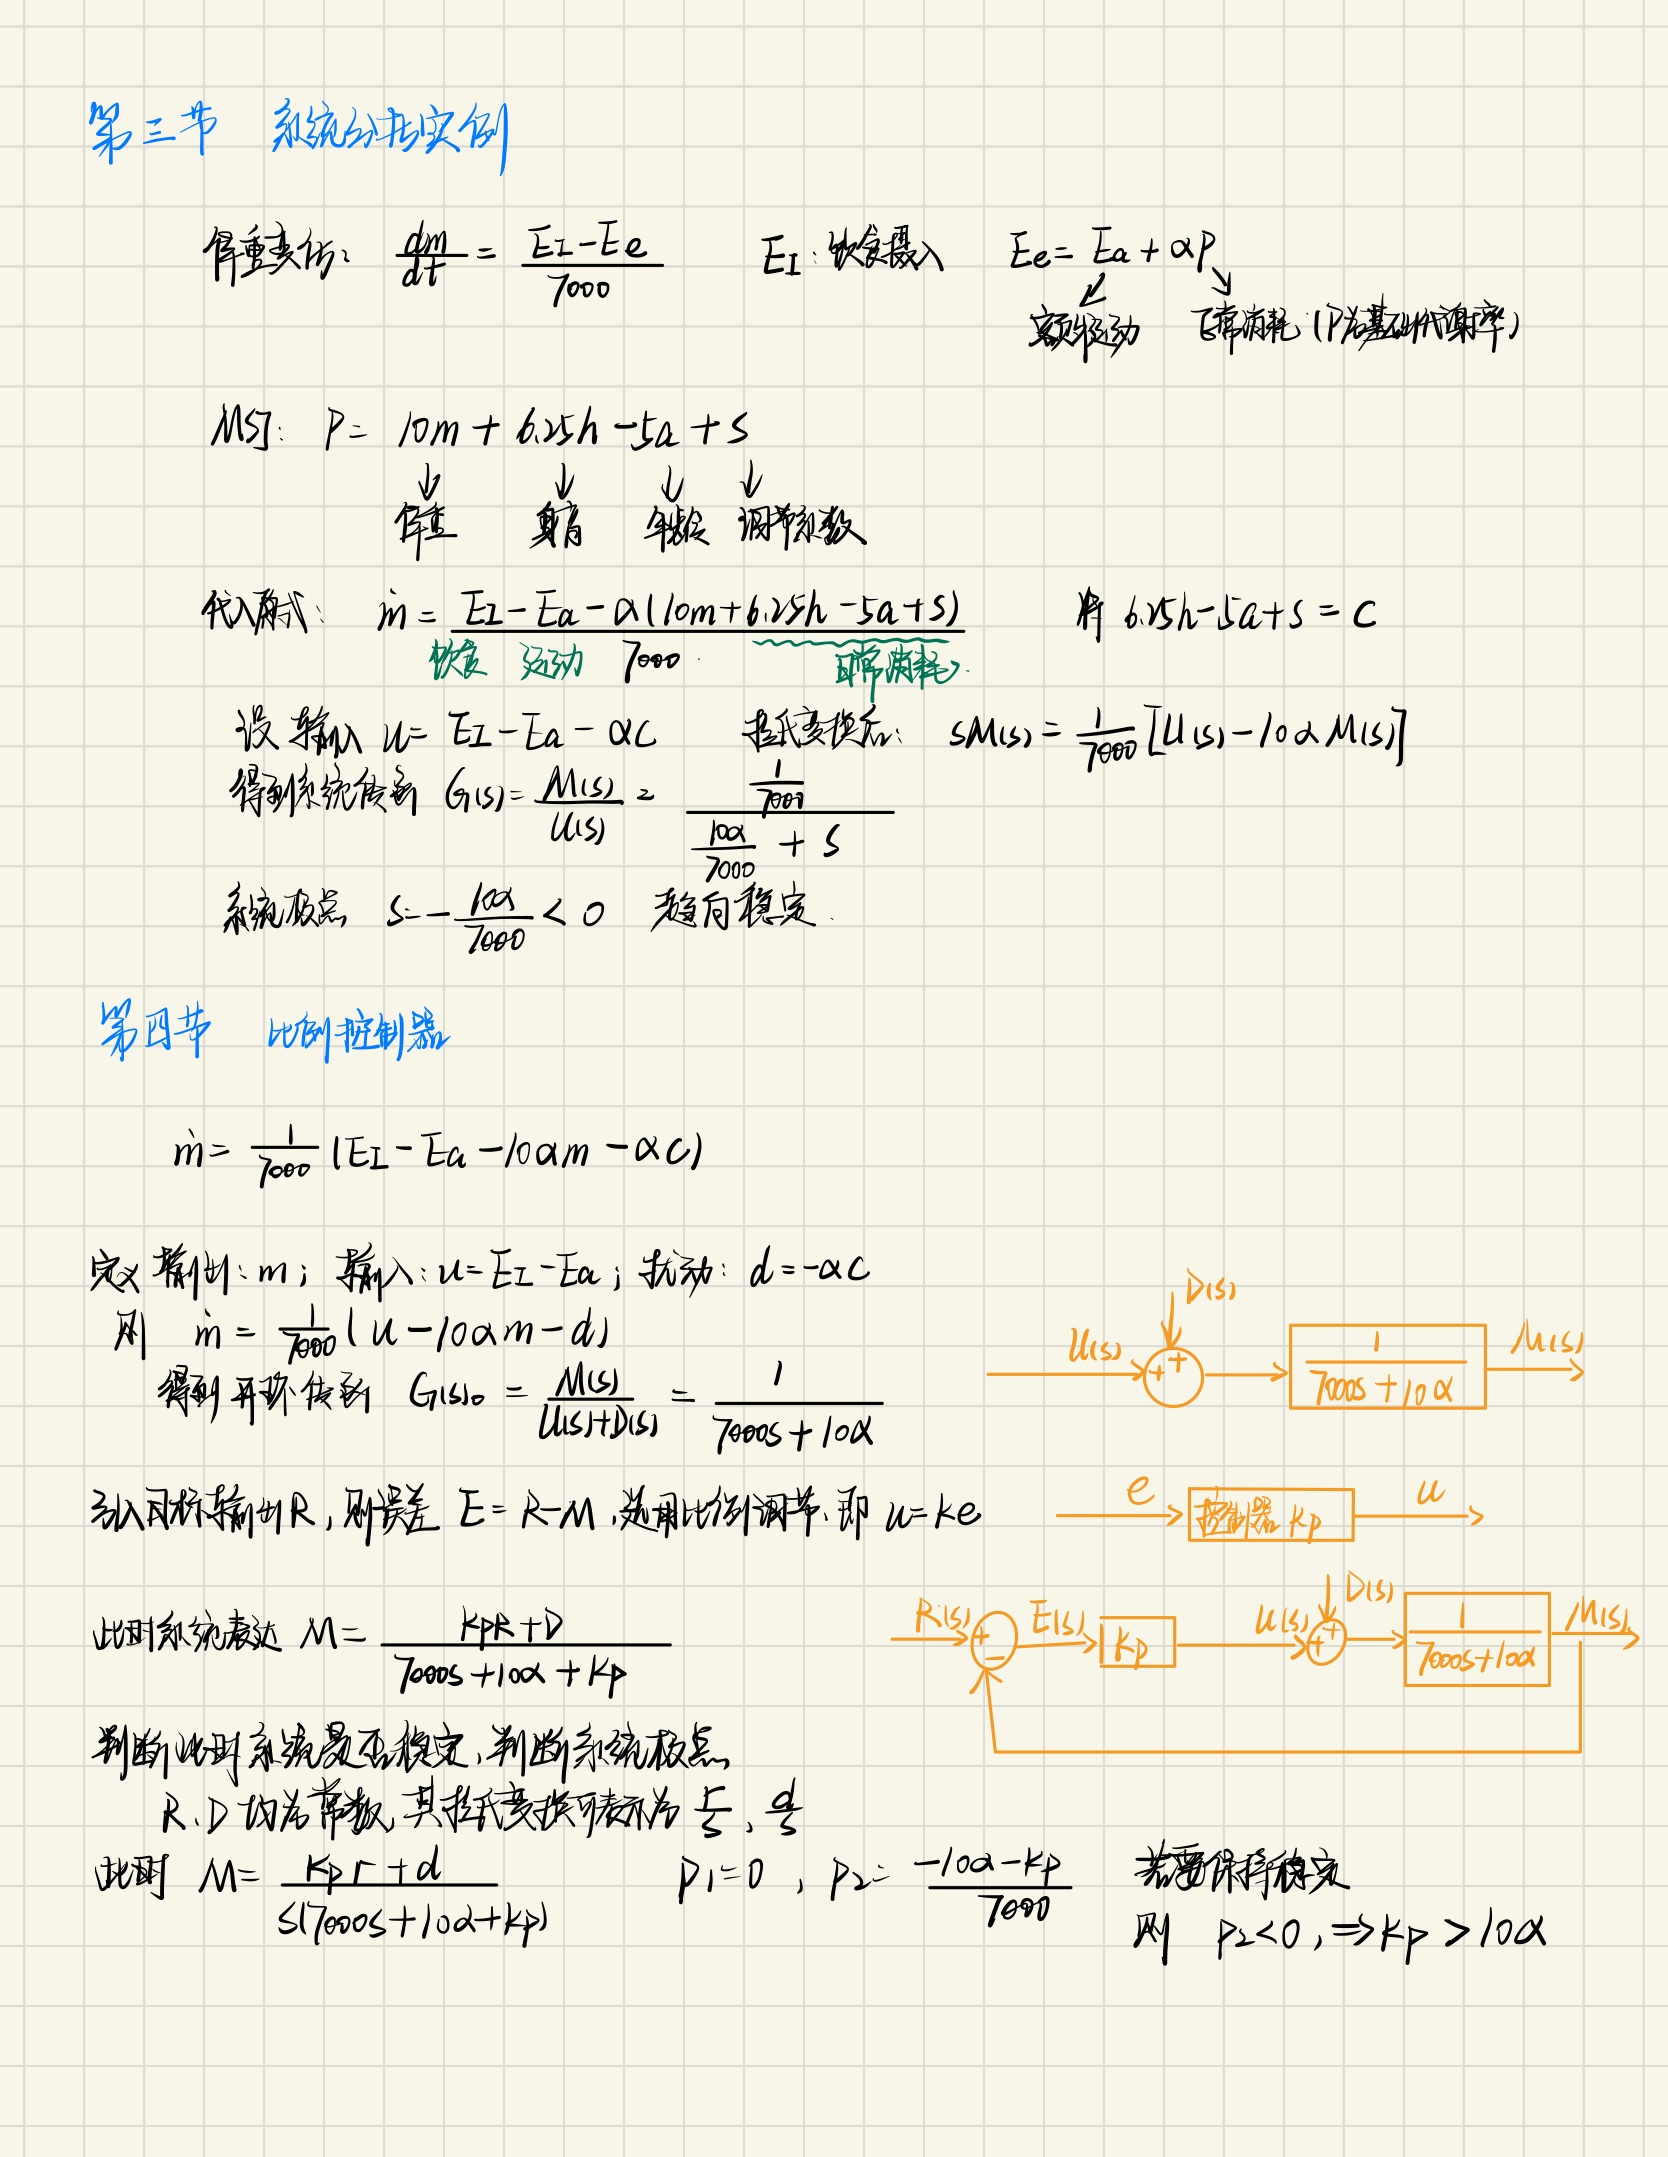 第三节 系统分析实例
体重变化： dm/dt = (EI－Ee)/7000 EI：饮食摄入 Ee = Ea + αP
额外运动 日常消耗（P为基础代谢率）
MSJ： P = 10m + 6.25h －5a + s
体重 身高 年龄 调节系数
代入原式： ṁ = (EI－Ea－α(10m+6.25h－5a+s))/7000 将 6.25h－5a+s = C
饮食 运动 日常消耗
设输入 u = EI－Ea－αC 拉氏变换后： sM(s) = 1/7000 [U(s)－10αM(s)]
得到系统传函 G(s) = M(s)/U(s) = (1/7000)/(10α/7000 + s)
系统极点 s = －10α/7000 < 0 趋向稳定.
第四节 比例控制器
ṁ = 1/7000 (EI－Ea－10αm－αC)
定义输出：m； 输入：u = EI－Ea； 扰动： d = －αC
则 ṁ = 1/7000 (u－10αm－d)
得到开环传函 G(s)o = M(s)/(U(s)+D(s)) = 1/(7000s+10α)
U(s) D(s) + + 1/(7000s+10α) M(s)
引入目标输出R，则误差 E = R－M，选用比例调节，即 u = ke
e 控制器 kp u
此时系统表达 M = (kpR+D)/(7000s+10α+kp)
R(s) + － E(s) kp U(s) D(s) + + 1/(7000s+10α) M(s)
判断此时系统是否稳定，判断系统极点
R、D 均为常数，其拉氏变换可表示为 r/s、d/s
此时 M = (kp r + d)/(s(7000s+10α+kp)) P1 = 0 ， P2 = (－10α－kp)/7000 若要保持稳定
则 P2<0，⇒kp > 10α